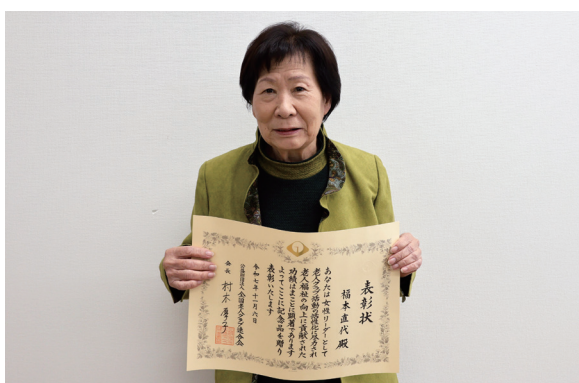 表彰状
福本直代 殿
あなたは女性リーダーとして
老人クラブ活動の活性化に尽力され
老人福祉の向上に貢献された
功績はまことに顕著であります
よってここに記念品を贈り
表彰いたします
令和七年十一月六日
公益財団法人 全国老人クラブ連合会
会長 村木厚子